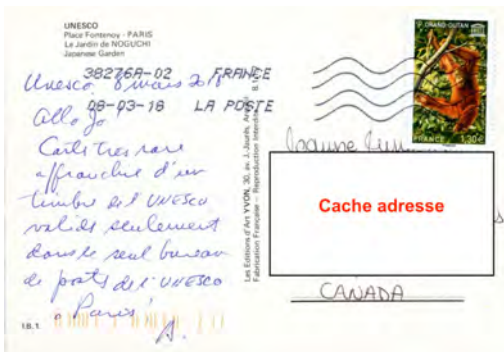 UNESCO
Place Fontenoy - PARIS
Le Jardin de NOGUCHI
Japanese Garden
38276A-02 FRANCE
08-03-18 LA POSTE
Unesco, 8 mars 2018
Allo Jo
Carte très rare
affranchie d'un
timbre de l'UNESCO
valide seulement
dans le seul bureau
de poste de l'UNESCO
Paris!
A.
I.B.1.
Les Editions d'Art YVON, 30, av. J.-Jaurès,
Fabrication Française - Reproduction Interdite
GRAND-OUTAN
FRANCE
1,30€
Cache adresse
CANADA